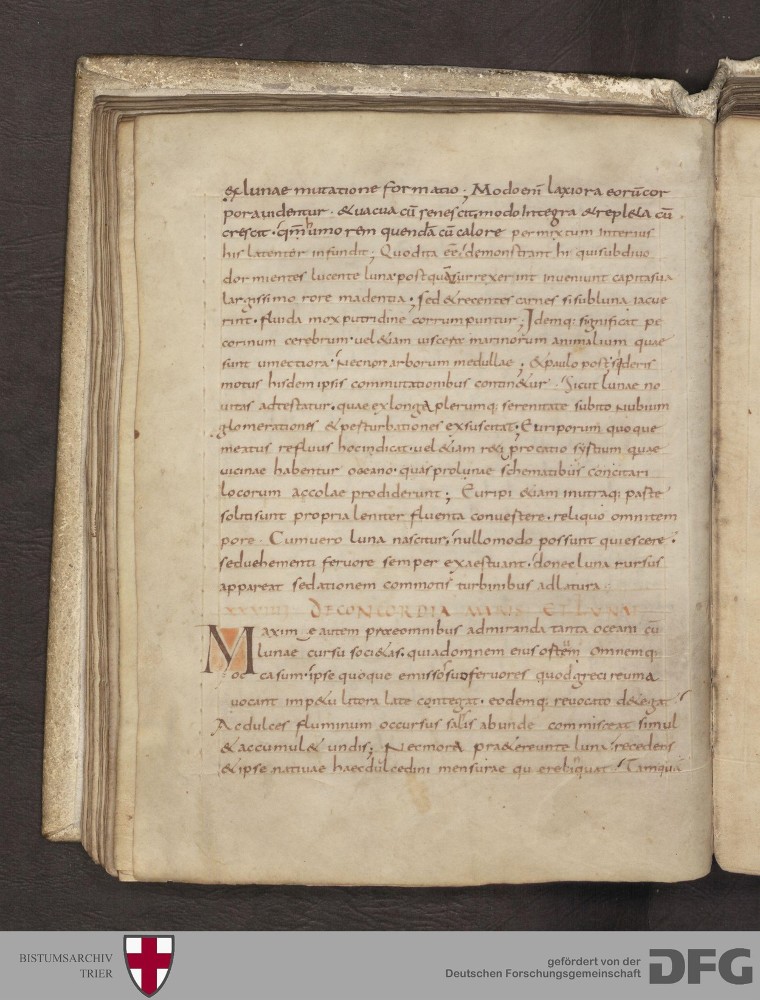 ex lunae mutatione formatio; Modo enī laxiora eorū cor
pora videntur. & vacua cū senescit, modo integra & repleta cū
crescit. qm̄ humorem quendā cū calore permixtum interius
his latenter infundit; Quod ita eē demonstrant hi qui sub divo
dormientes lucente luna postquā surrexerint inveniunt capita sua
largissimo rore madentia; sed & recentes carnes si sub luna iacue
rint. fluida mox putridine corrumpuntur; Idemq; significat pe
corinum cerebrum. vel &iam viscera marinorum animalium quae
sunt umectiora. Necnon arborum medullae; & paulo post sideris
motus hisdem ipsis commutationibus contin&ur. Sicut lunae no
vitas adtestatur. quae ex longa plerumq; serenitate subito nubium
glomerationes & perturbationes exsuscitat. Euriporum quoque
meatus refluus hoc indicat. vel &iam reciprocatio syrtium quae
vicinae habentur oceano. quas pro lunae schematibus concitari
locorum accolae prodiderunt; Euripi &iam in utraq; parte
soliti sunt propria leniter fluenta convertere. reliquo omni tem
pore. Cum vero luna nascitur, nullo modo possunt quiescere.
sed vehementi fervore semper exaestuant. donec luna rursus
appareat sedationem commotis turbinibus adlatura.
DE CONCORDIA MARIS ET LUNAE
Maxime autem prae omnibus admiranda tanta oceani cū
lunae cursu soci&as. quia ad omnem eius ortum omnemq;
occasum. ipse quoque emissos suos fervores quod greci reuma
vocant imp&u litora late contegat. eodemq; revocato d&egat
Ac dulces fluminum occursus salis abunde commisceat simul
& accumul& undis; Nec mora praetereunte luna recedens
& ipse nativae haec dulcedini mensurae Tamquā
BISTUMSARCHIV
TRIER
gefördert von der
Deutschen Forschungsgemeinschaft
DFG